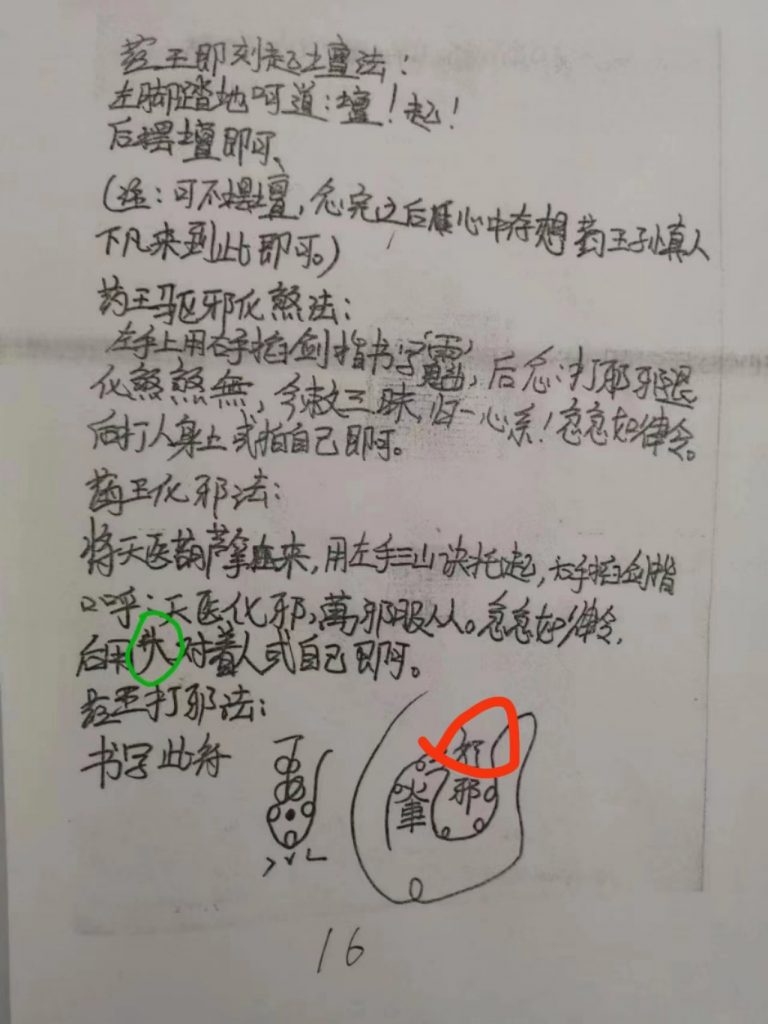 药王即刻起土壇法：
左脚踏地呵道：壇！起！
后摆壇即可、
（注：可不摆壇，念完之后唯心中存想药王孙真人
下凡来到此即可。）
药王驱邪化煞法：
左手上用右手掐剑指书字，后念：打邪邪退
化煞煞無，今敕三昧，归一心系！急急如律令。
向打人身上或拍自己即可。
药王化邪法：
将天医葫芦拿出来，用左手三山诀托起，右手掐剑指
口呼：天医化邪，萬邪服从。急急如律令，
后用头对着人或自己即可。
药王打邪法：
书字此符
邪
16